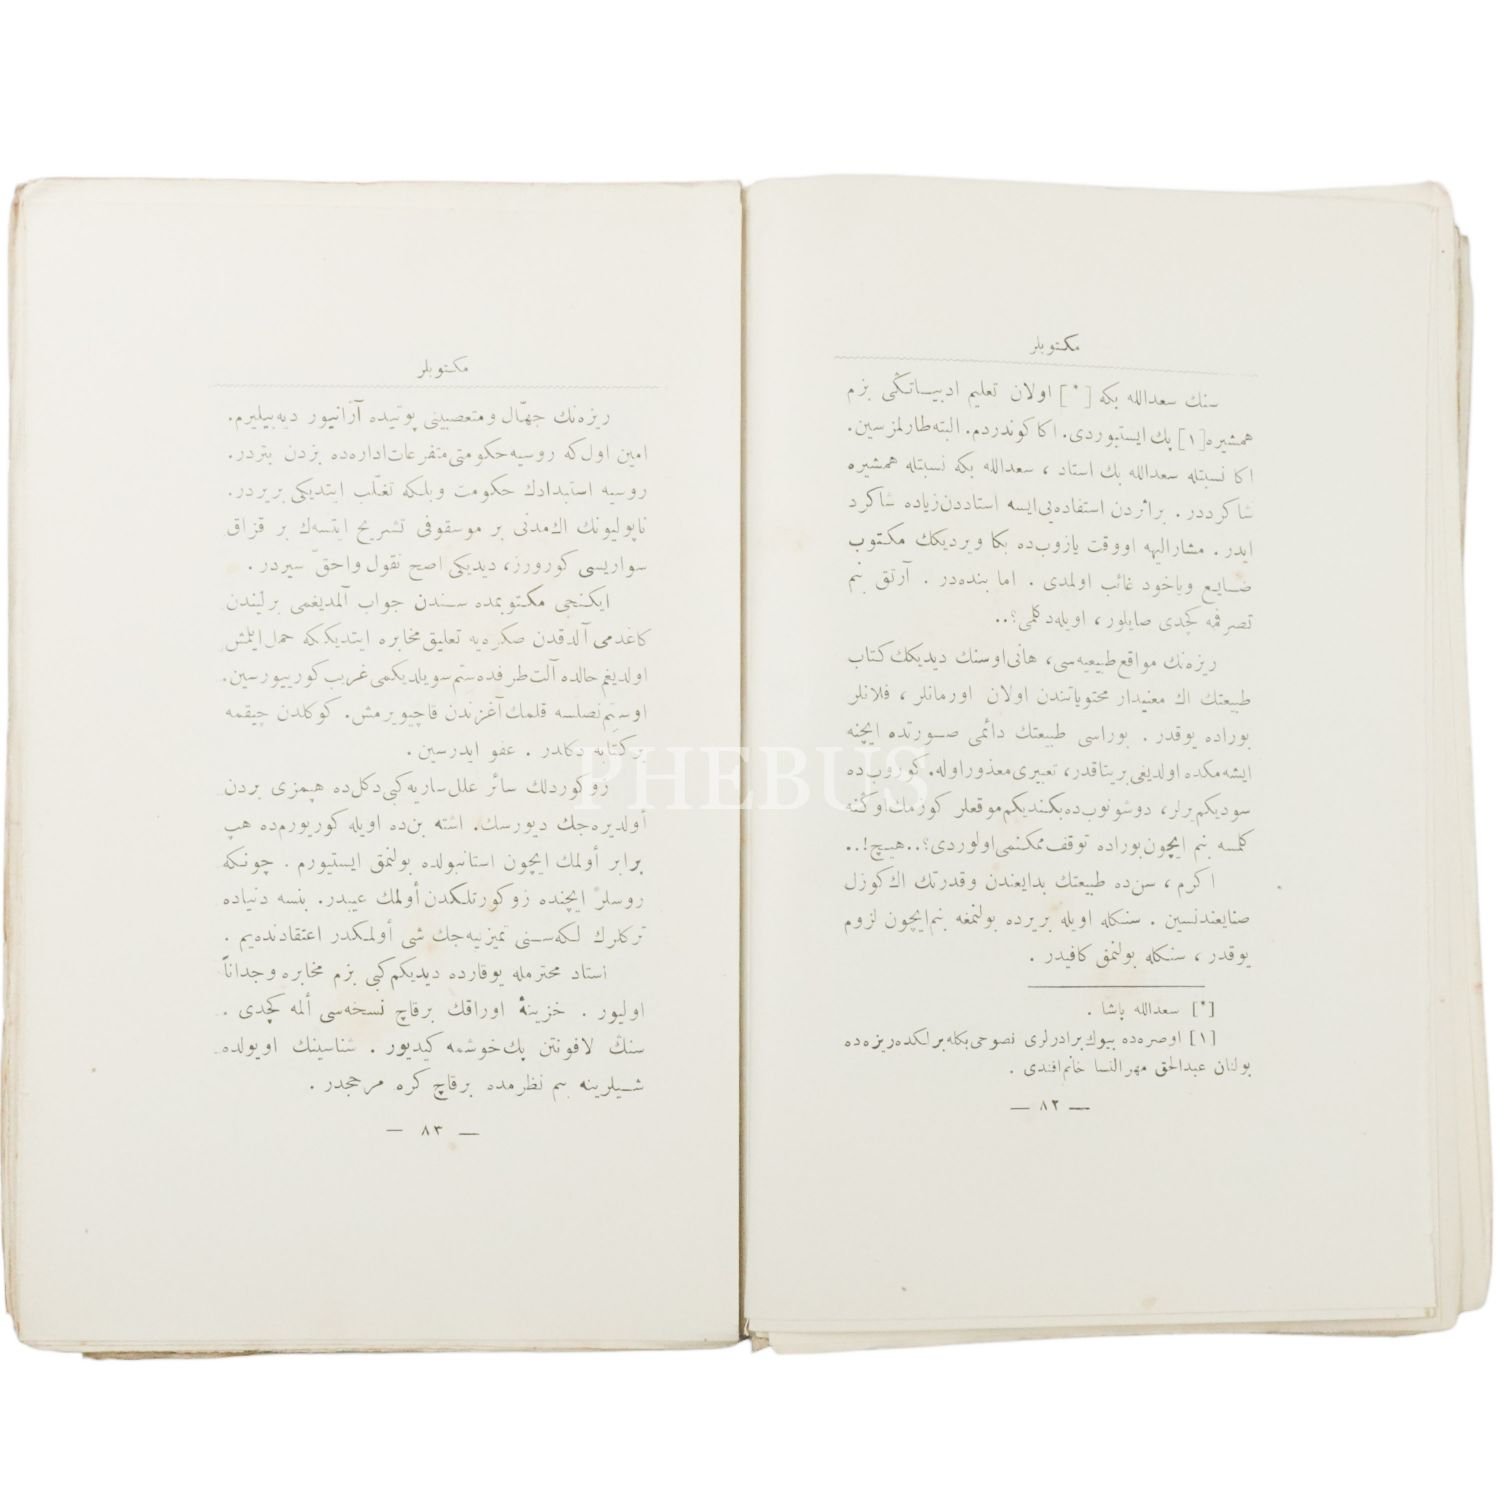 مكتوبلر
سنك سعدالله بكه [*] اولان تعليم ادبيــاتكى بزم
همشيره [١] پك ايستيوردى. اكا كوندردم. البته طارلمزسين.
اكا نسبتله سعدالله بك استاد ، سعدالله بكه نسبتله همشيره
شاكرددر . براثردن استفاده يى ايسه استاددن زياده شاكرد
ايدر . مشاراليه اووقت يازوب ده بكا ويرديكك مكتوب
ضــايع وياخود غائب اولمدى . اما بنده در . آرتق بنم
تصرفمه كچدى صايلور ، اويله دكلمى؟..
ريزه نك مواقع طبيعيه سى، هانى اوسنك ديديكك كتاب
طبيعتك اك معنيدار محتوياتندن اولان اورمانلر ، فلانلر
بوراده يوقدر . بوراسى طبيعتك دائمى صــورتده ايچنه
ايشه مكده اولديغى بريتاقدر، تعبيرى معذور اوله. كوروب ده
سوديكم يرلر، دوشونوب ده بكنديكم موقعلر كوزمك اوكنه
كلمسه بنم ايچون بوراده توقف ممكنمى اولوردى؟.. هيچ!..
اكرم ، سن ده طبيعتك بدايعندن وقدرتك اك كوزل
صنايعندنسين . سنكله اويله بريرده بولنمغه بنم ايچون لزوم
يوقدر ، سنكله بولنمق كافيدر .
[*] سعدالله پاشا .
[١] اوصره ده بيوك برادرلرى نصوحى بكله برلكده ريزه ده
بولنان عبدالحق مهرالنسا خانم افندى .
— ٨٢ —
مكتوبلر
ريزه نك جهّال و متعصبينى پوتيده آرانيور ديه بيليرم.
امين اول كه روسيه حكومتى متفرعات اداره ده بزدن بتردر.
روسيه استبدادك حكومت وبلكه تغلّب ايتديكى بريردر.
ناپوليونك اك مدنى بر موسقوفى تشريح ايتسه ك بر قزاق
سواريسى كورورز، ديديكى اصح نقول واحقّ سيردر .
ايكنجى مكتوبمده ســندن جواب آلمديغمى برلیندن
كاغدمى آلدقدن صكره يه تعليق مخابره ايتديككه حمل ايلمش
اولديغم حالده آلت طرفده ستم سويلديكمى غريب كورييورسين.
اوستم نصلسه قلمك آغزندن قاچيويرمش. كوكلدن چيقمه
بر كنايه دكلدر . عفو ايدرسين .
زوكوردلك سائر علل ساريه كبى دكل ده هپمزى بردن
أولديره جك ديورسك. اشته بن ده اويله كوريورم ده هپ
برابر أولمك ايچون استانبولده بولنمق ايستيورم . چونكه
روسلر ايچنده زوكورتلكدن أولمك عيبدر. بنسه دنياده
تركلرك لكه ســنى تميزليه جك شى أولمكدر اعتقادنده يم .
استاد محترمله يوقارده ديديكم كبى بزم مخابره وجداناً
اوليور . خزينۀ اوراقك برقاچ نسخه سى ألمه كچدى .
سنك لافونتن پك خوشمه كيديور . شناسينك اويولده
شــيلرينه بنم نظرمده برقاچ كره مرجحدر .
— ٨٣ —
PHEBUS